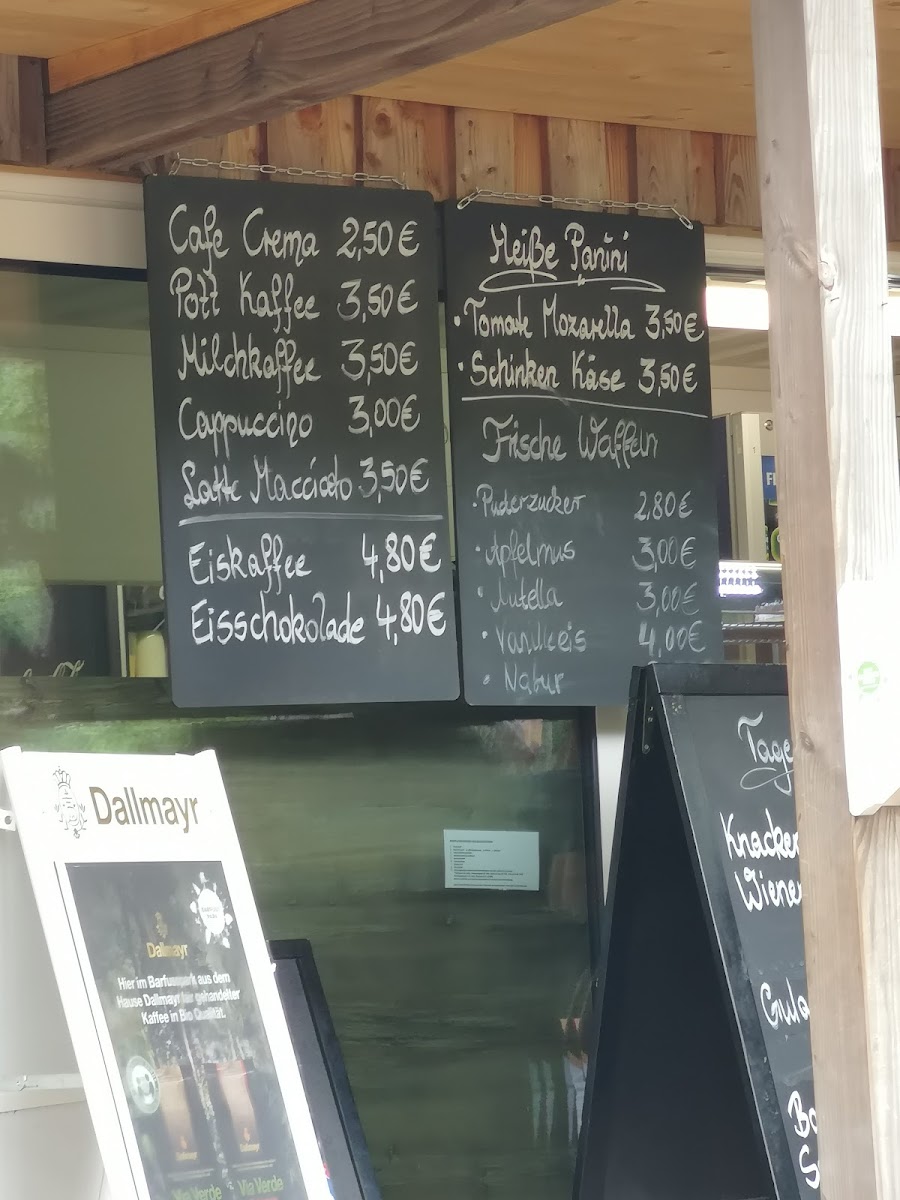 Cafe Crema 2,50€
Pott Kaffee 3,50€
Milchkaffee 3,50€
Cappuccino 3,00€
Latte Macciato 3,50€
Eiskaffee 4,80€
Eisschokolade 4,80€
Heiße Panini
• Tomate Mozarella 3,50€
• Schinken Käse 3,50€
Frische Waffeln
• Puderzucker 2,80€
• Apfelmus 3,00€
• Nutella 3,00€
• Vanilleeis 4,00€
• Natur
Tage
Knacker
Wiener
Gula
Dallmayr
Dallmayr
Hier im Barfusspark aus dem
Hause Dallmayr fair gehandelter
Kaffee in Bio Qualität.
Via Verde Via Verde